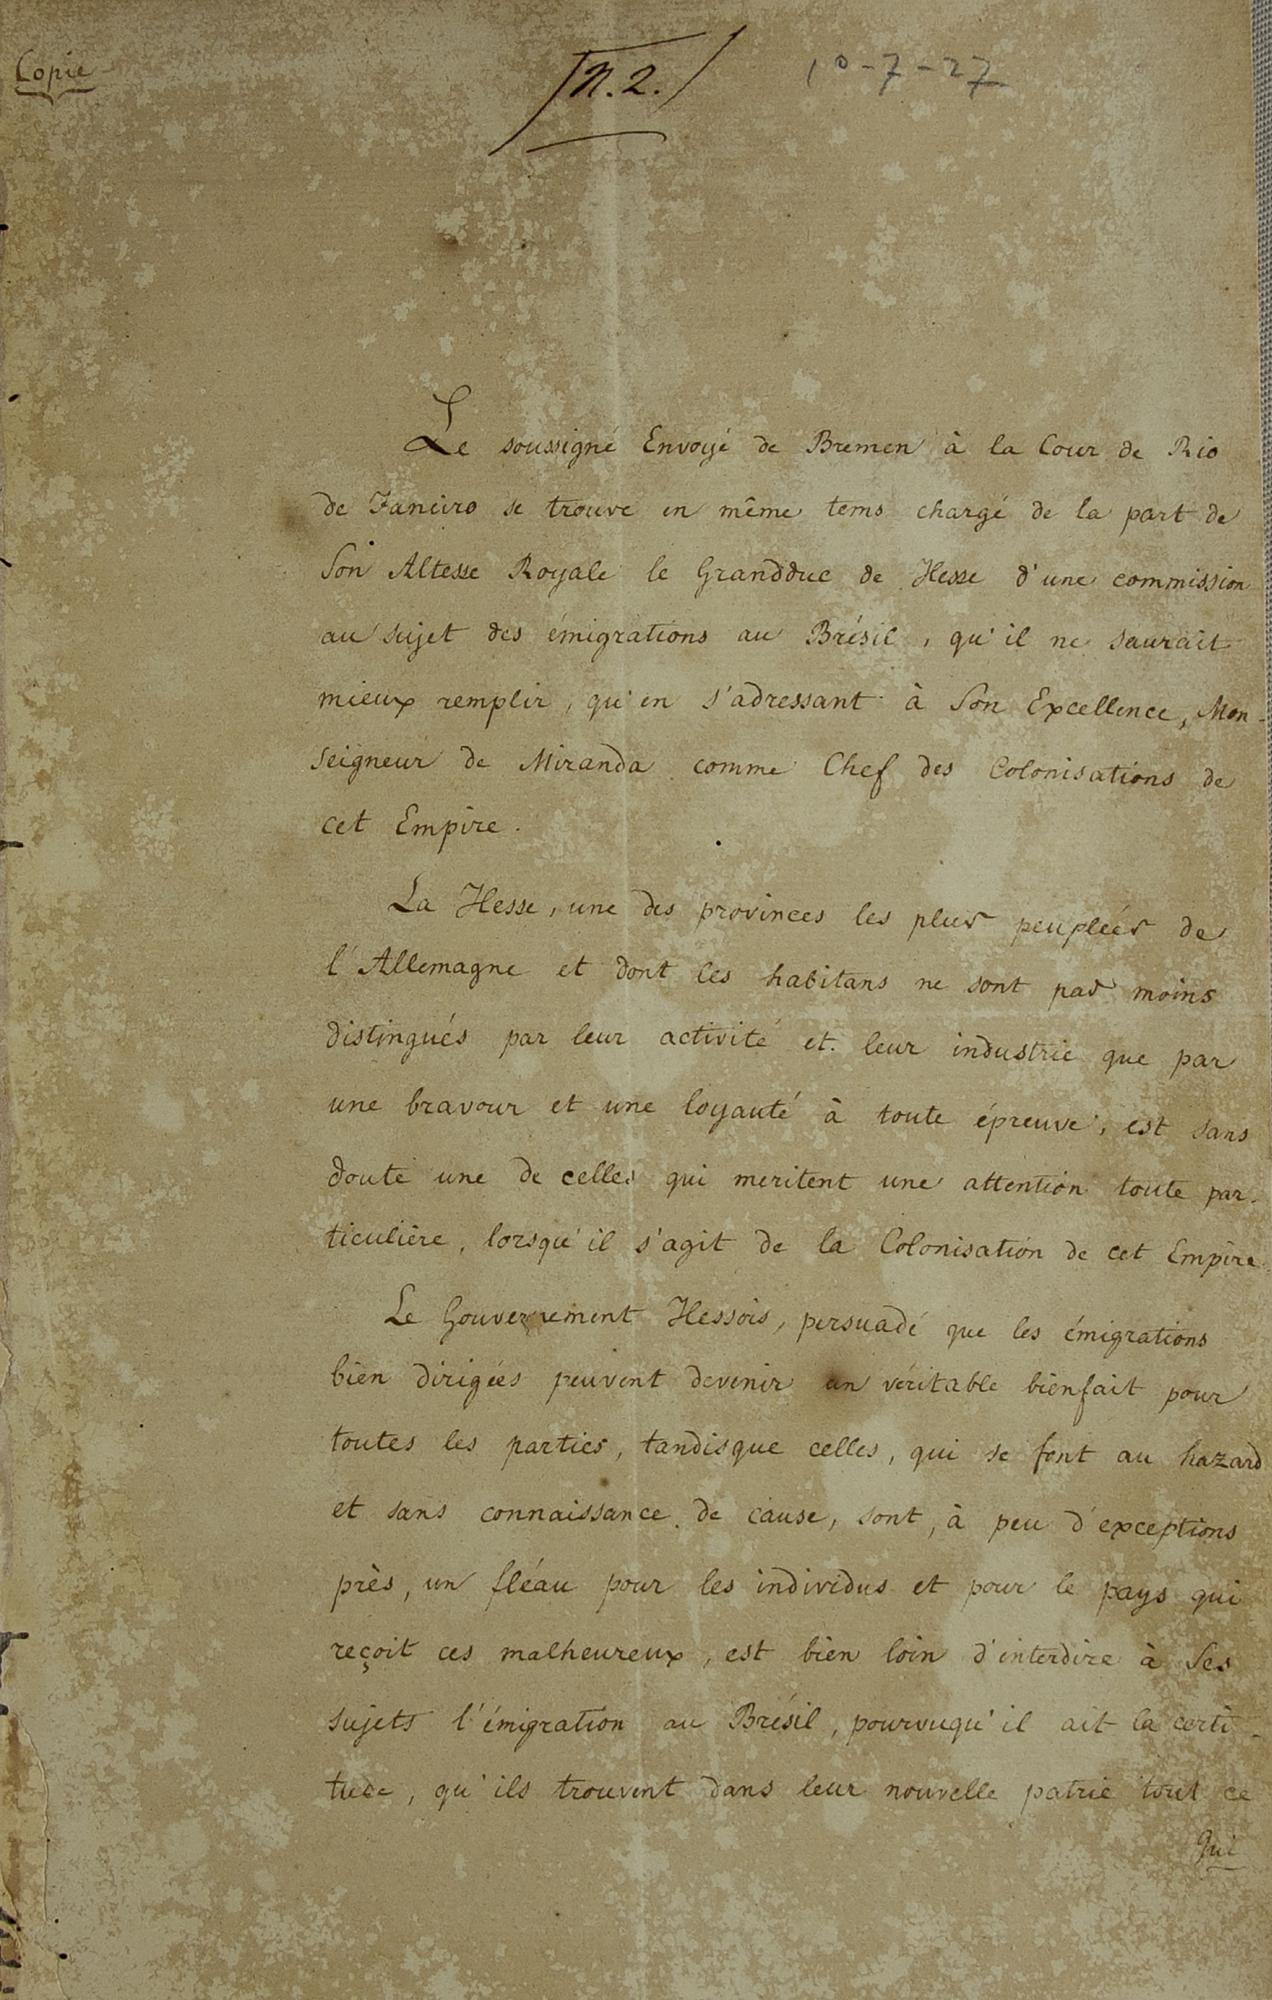 Copie
N. 2.
10-7-27
Le soussigné Envoyé de Bremen à la Cour de Rio
de Janeiro se trouve en même tems chargé de la part de
Son Altesse Royale le Grandduc de Hesse d'une commission
au sujet des émigrations au Brésil, qu'il ne saurait
mieux remplir, qu'en s'adressant à Son Excellence, Mon-
seigneur de Miranda comme Chef des Colonisations de
cet Empire.
La Hesse, une des provinces les plus peupleés de
l'Allemagne et dont les habitans ne sont pas moins
distingués par leur activité et leur industrie que par
une bravour et une loyauté à toute épreuve, est sans
doute une de celles qui meritent une attention toute par-
ticulière, lorsqu'il s'agit de la Colonisation de cet Empire.
Le Gouvernement Hessois, persuadé que les émigrations
bien dirigées peuvent devenir un véritable bienfait pour
toutes les parties, tandisque celles, qui se font au hazard
et sans connaissance de cause, sont, à peu d'exceptions
près, un fléau pour les individus et pour le pays qui
reçoit ces malheureux, est bien loin d'interdire à Ses
sujets l'émigration au Brésil, pourvuqu'il ait la certi-
tude, qu'ils trouvent dans leur nouvelle patrie tout ce
qui